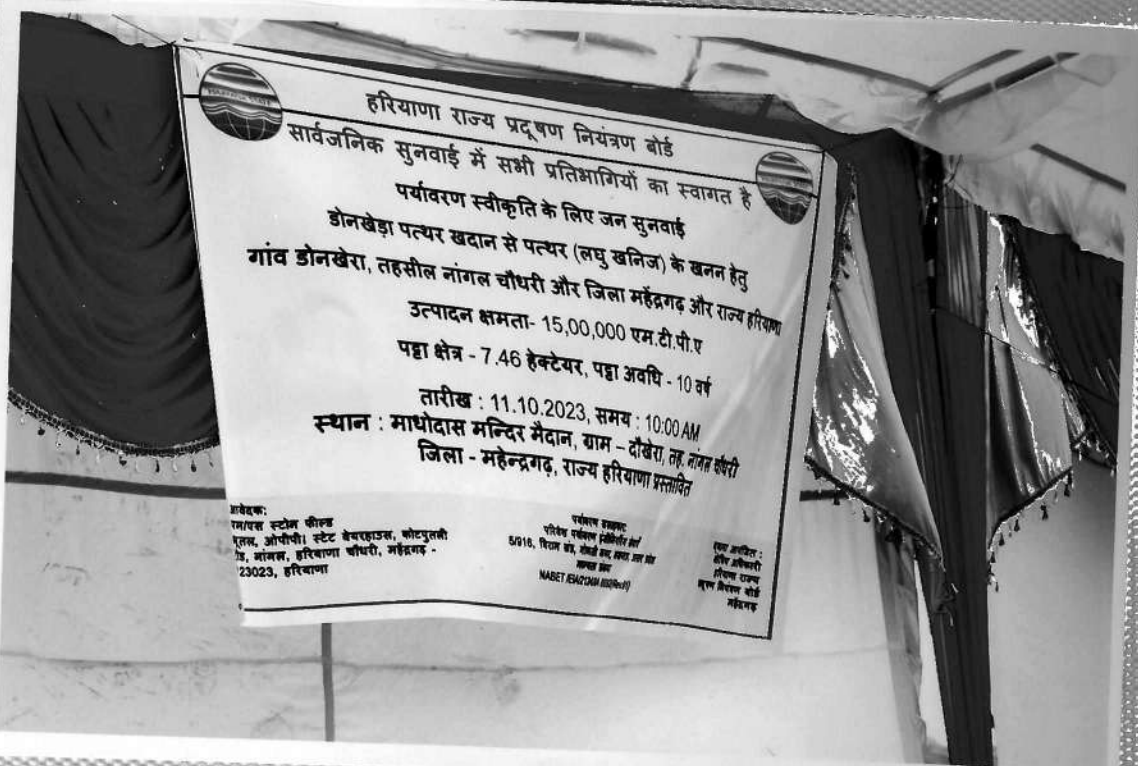 HARYANA STATE
हरियाणा राज्य प्रदूषण नियंत्रण बोर्ड
सार्वजनिक सुनवाई में सभी प्रतिभागियों का स्वागत है
पर्यावरण स्वीकृति के लिए जन सुनवाई
डोनखेड़ा पत्थर खदान से पत्थर (लघु खनिज) के खनन हेतु
गांव डोनखेरा, तहसील नांगल चौधरी और जिला महेंद्रगढ़ और राज्य हरियाणा
उत्पादन क्षमता- 15,00,000 एम.टी.पी.ए
पट्टा क्षेत्र - 7.46 हेक्टेयर, पट्टा अवधि - 10 वर्ष
तारीख : 11.10.2023, समय : 10:00 AM
स्थान : माधोदास मन्दिर मैदान, ग्राम – दौखेरा, तह. नांगल चौधरी
जिला - महेन्द्रगढ़, राज्य हरियाणा प्रस्तावित
आवेदक:
स्टोन फील्ड
ओपीपी। स्टेट वेयरहाउस, कोटपुतली
नांगल, हरियाणा चौधरी, महेंद्रगढ़ -
23023, हरियाणा
पर्यावरण सलाहकार:
परिवेश पर्यावरण
5/916, विराम खंड,
NABET
क्षेत्रीय अधिकारी
हरियाणा राज्य
नियंत्रण बोर्ड
महेंद्रगढ़